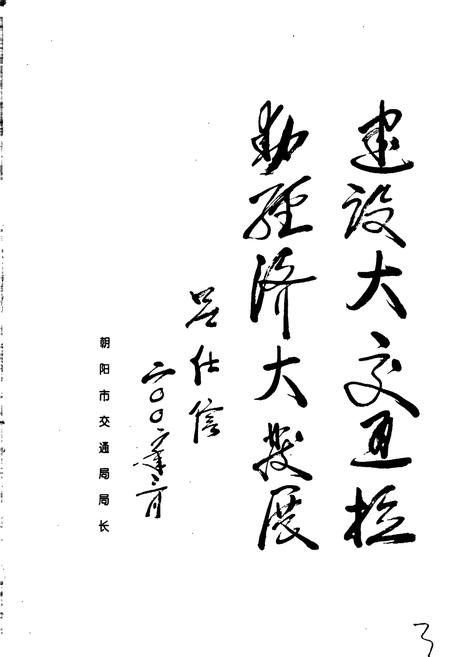 建设大交通推
动经济大发展
吴仕信
二〇〇六年三月
朝阳市交通局局长
3